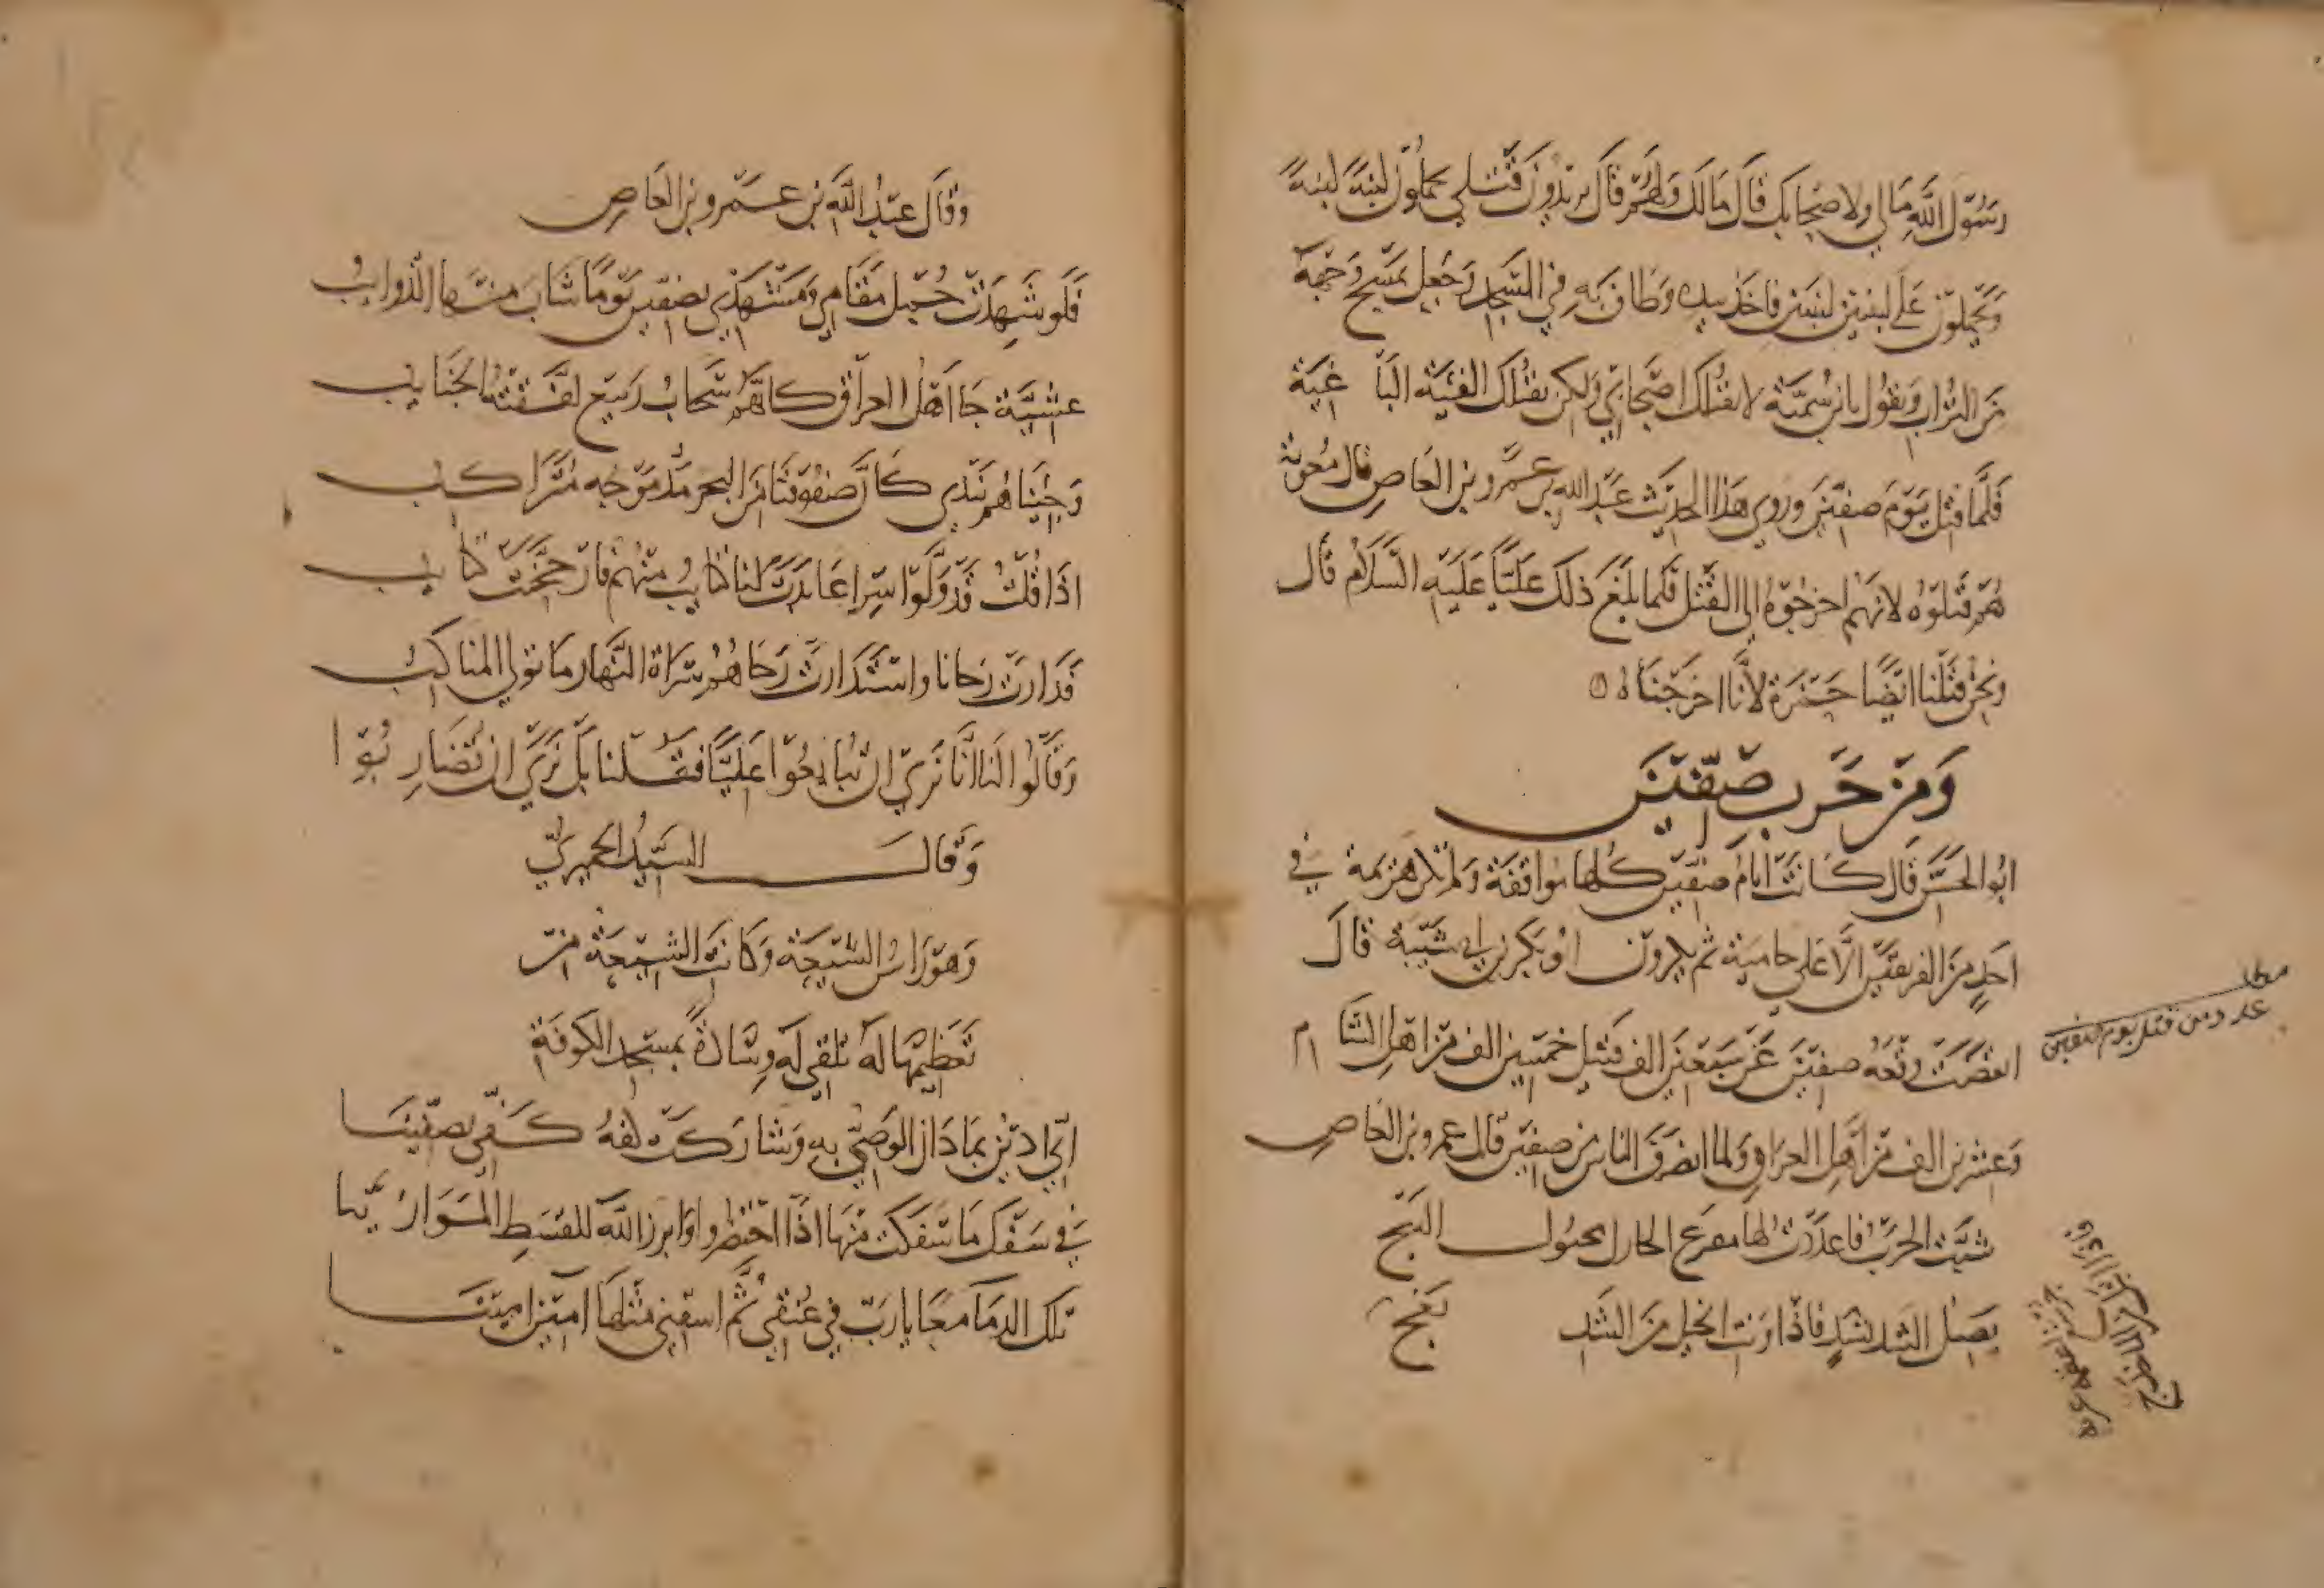 رسول الله مالي ولاصحابك قال مالك ولهم قال يريدون قتلي يحملون لبنة لبنة
ويحملون على لبنتين لبنتين فاخذ بيده وطاف به في المسجد وجعل يمسح وجهه
من التراب ويقول يابن سمية لا يقتلك اصحابي ولكن يقتلك الفئية الباغية
فلما قتل يوم صفين وروى هذا الحديث عبد الله بن عمرو بن العاص قال معوية
هم قتلوه لانهم اخرجوه الى القتل فلما بلغ ذلك عليا عليه السلام قال
ونحن قتلنا ايضا حمزة لأنا اخرجناه
ومن حرب صفين
ابو الحسن قال كانت ايام صفين كلها مواقفة ولم تكن هزيمة في
احد من الفريقين الا على حامية ثم يكرون ابو بكر بن ابي شيبة قال
انفضت وقعه صفين عن سبعين الف قتيل خمسين الف من اهل الشام
وعشرين الف من اهل العراق ولما انصرف الناس من صفين قال عمرو بن العاص
شبت الحرب فاعددت لها مفرع الحارك محبوك الثبج
يصل الشد بشد فاذا ونت الخيل من الشد
معج
مطلب
عدد من قتل يوم صفين
وقال عبد الله بن عمرو بن العاص
فلو شهدت جمل مقامي ومشهدي بصفين يوما شاب منها الذوايب
عشية جا اهل العراق كانهم سحاب ربيع لفقته الجنايب
وجيناهم نردي كان صفوفنا من البحر مد موجه متراكب
اذا قلت قد ولوا سراعا بدت لنا كتايب منهم فارجحنت كتايب
فدارت رحانا واستدارت رحاهم سراة النهار ما تولي المناكب
وقالوا لنا انا نرى ان تبايعوا عليا فقلنا بل نرى ان تضاربوا
وقال السيد الحميري
وهو راس الشيعة وكانت الشيعة من
تعظيمها له تلقي له وسادة بمسجد الكوفة
اني ادين بما دان الوصي به وشاركت كفه كفي بصفينا
في سفك ما سفكت منها اذا احتضروا وابرز الله للقسط الموارينا
تلك الدما معا يا رب في عنقي ثم اسقني مثلها آمين امينا